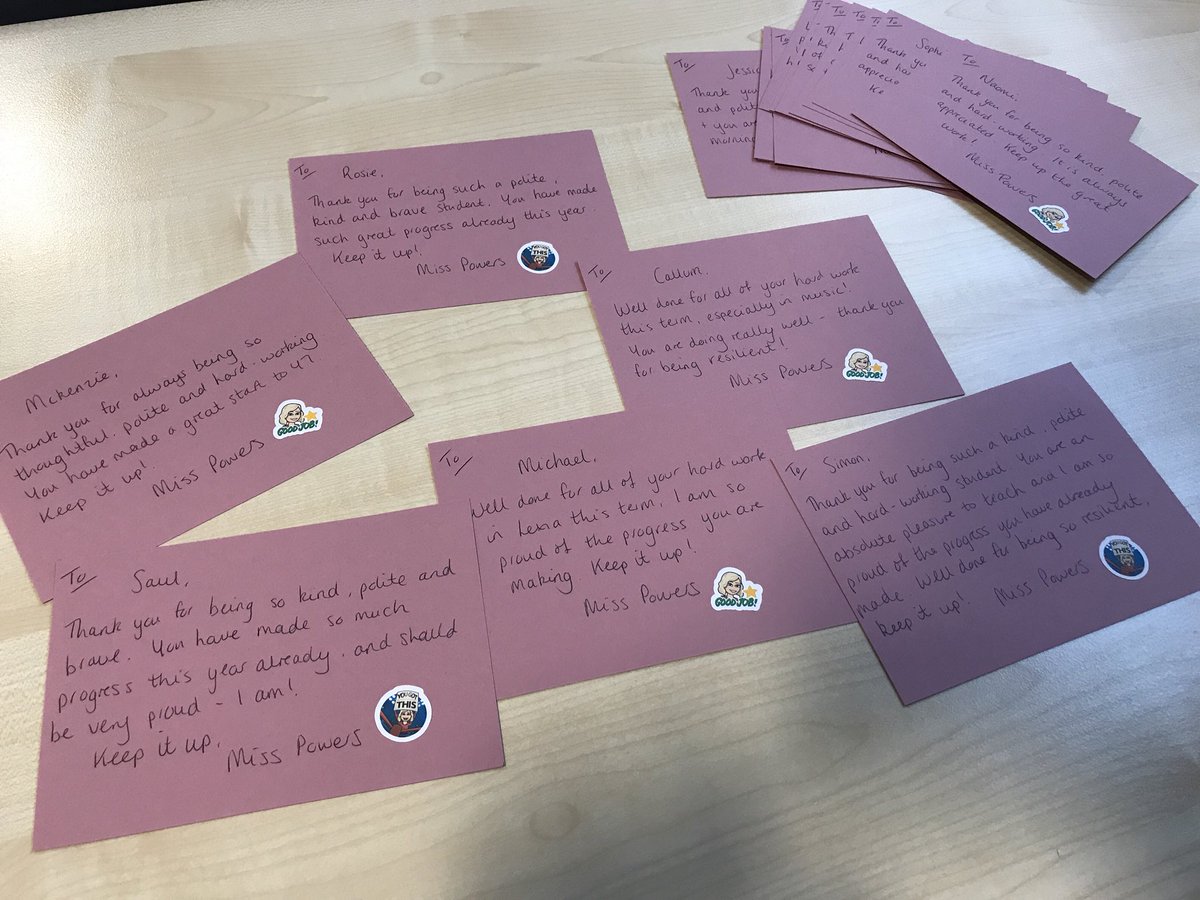 To
Rosie,
Thank you for being such a polite,
kind and brave student. You have made
such great progress already this year
Keep it up!
Miss Powers
YOU GOT
THIS
To
Callum,
Well done for all of your hard work
this term, especially in music!
You are doing really well - thank you
for being resilient!
Miss Powers
GOOD JOB!
Mckenzie,
Thank you for always being so
thoughtful, polite and hard-working
You have made a great start to
Keep it up!
Miss Powers
GOOD JOB!
To
Michael,
Well done for all of your hard work
in Lexia this term, I am so
proud of the progress you are
making. Keep it up!
Miss Powers
GOOD JOB!
To
Simon,
Thank you for being such a kind, polite
and hard-working student. You are an
absolute pleasure to teach and I am so
proud of the progress you have already
made. Well done for being so resilient,
keep it up! Miss Powers
YOU GOT
THIS
To
Saul,
Thank you for being so kind, polite and
brave. You have made so much
progress this year already, and should
be very proud - I am!
Keep it up.
Miss Powers
YOU GOT
THIS
To
Naomi,
Thank you for being so kind, polite
and hard-working. It is always
appreciated. Keep up the great
work!
Miss Powers
GOOD JOB!
To
Thank you
and
+ you are
To
Thank you
and